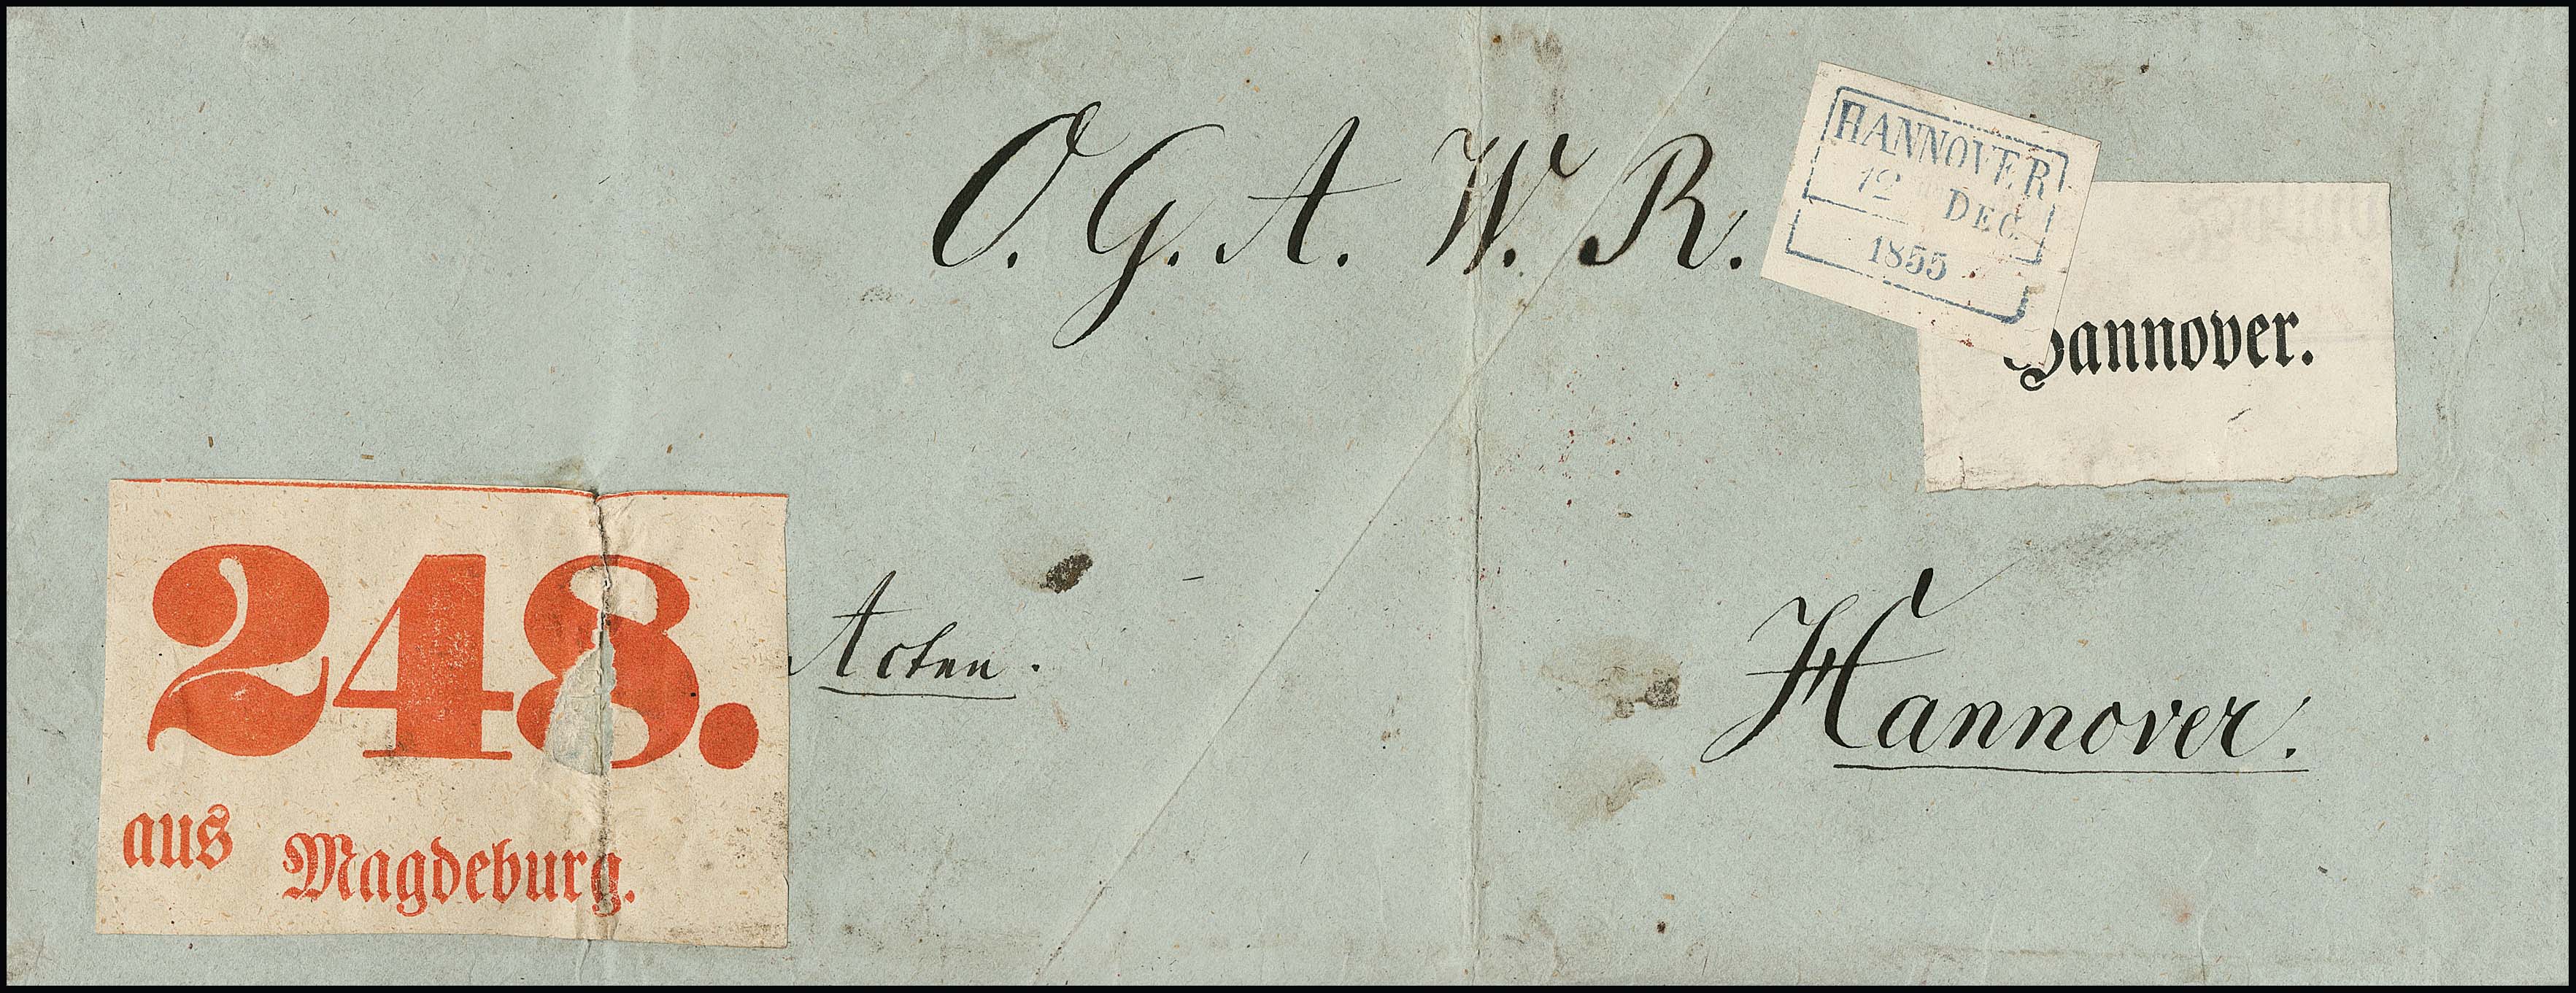 O. G. A. W. R.
HANNOVER
12 DEC
1855
Hannover.
248.
aus Magdeburg.
Acten.
Hannover.